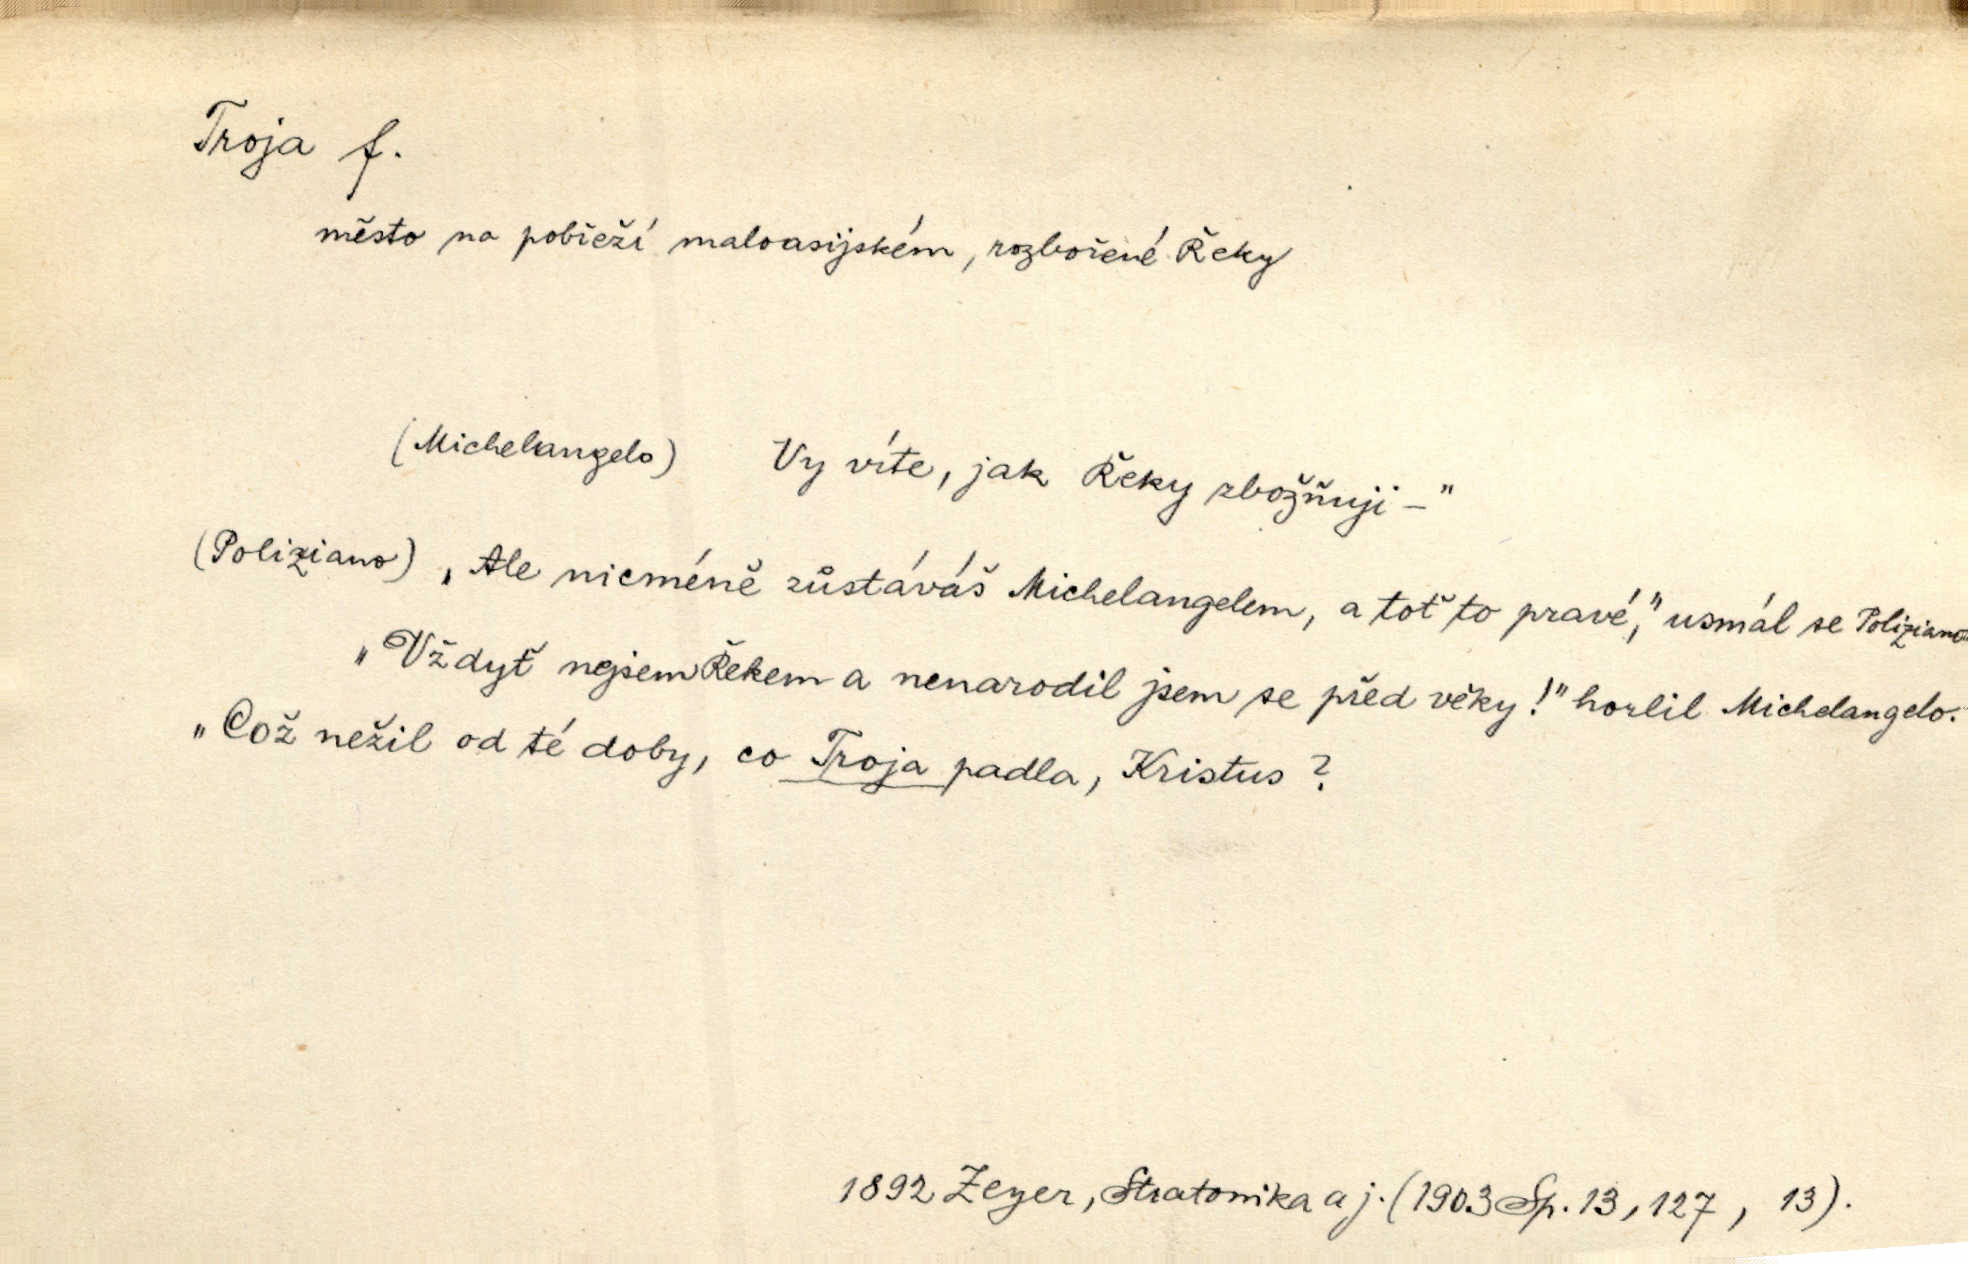 Troja f.
město na pobřeží maloasijském, rozbořené Řeky
(Michelangelo) Vy víte, jak Řeky zbožňuji –"
(Poliziano) „Ale nicméně zůstáváš Michelangelem, a toť to pravé," usmál se Poliziano
„Vždyť nejsem Řekem a nenarodil jsem se před věky!" horlil Michelangelo.
„Což nežil od té doby, co Troja padla, Kristus?
1892 Zeyer, Stratonika a j. (1903 Sp. 13, 127, 13).